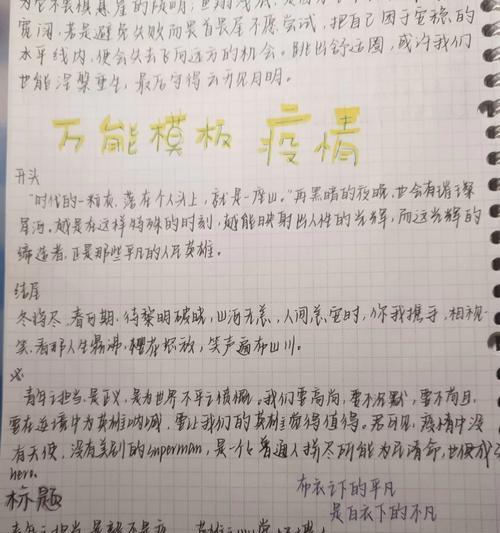 宽阔,若是避免失败而畏首畏尾不愿尝试,把自己困于安稳的
水平线内,便会失去飞向远方的机会。跳出舒适圈,或许我们
也能涅槃重生,最后守得云开见月明。
万能模板 疫情
开头
"时代的一粒灰,落在个人头上,就是一座山。"再黑暗的夜晚,也会有璀璨
星河。越是在这样特殊的时刻,越能映射出人性的光辉,而这光辉的
缔造者,正是那些平凡的人民英雄。
结尾
冬将尽,春可期,待黎明破晓,山河无恙,人间总宜时,你我携手,相视一
笑,看那人生鼎沸,樱花怒放,笑声遍布山川。
青年之担当,是正义,是为世界不平之愤慨。我们要高尚,要不沉默,要不苟且,
要在逆境中为英雄呐喊,要让我们的英雄觉得值得。君可见,疫情中没
有天使,没有美剧的superman,是一个个普通人拼尽所能为民请命,也便成了
hero.
标题
布衣之下的平凡
是白衣下的不凡